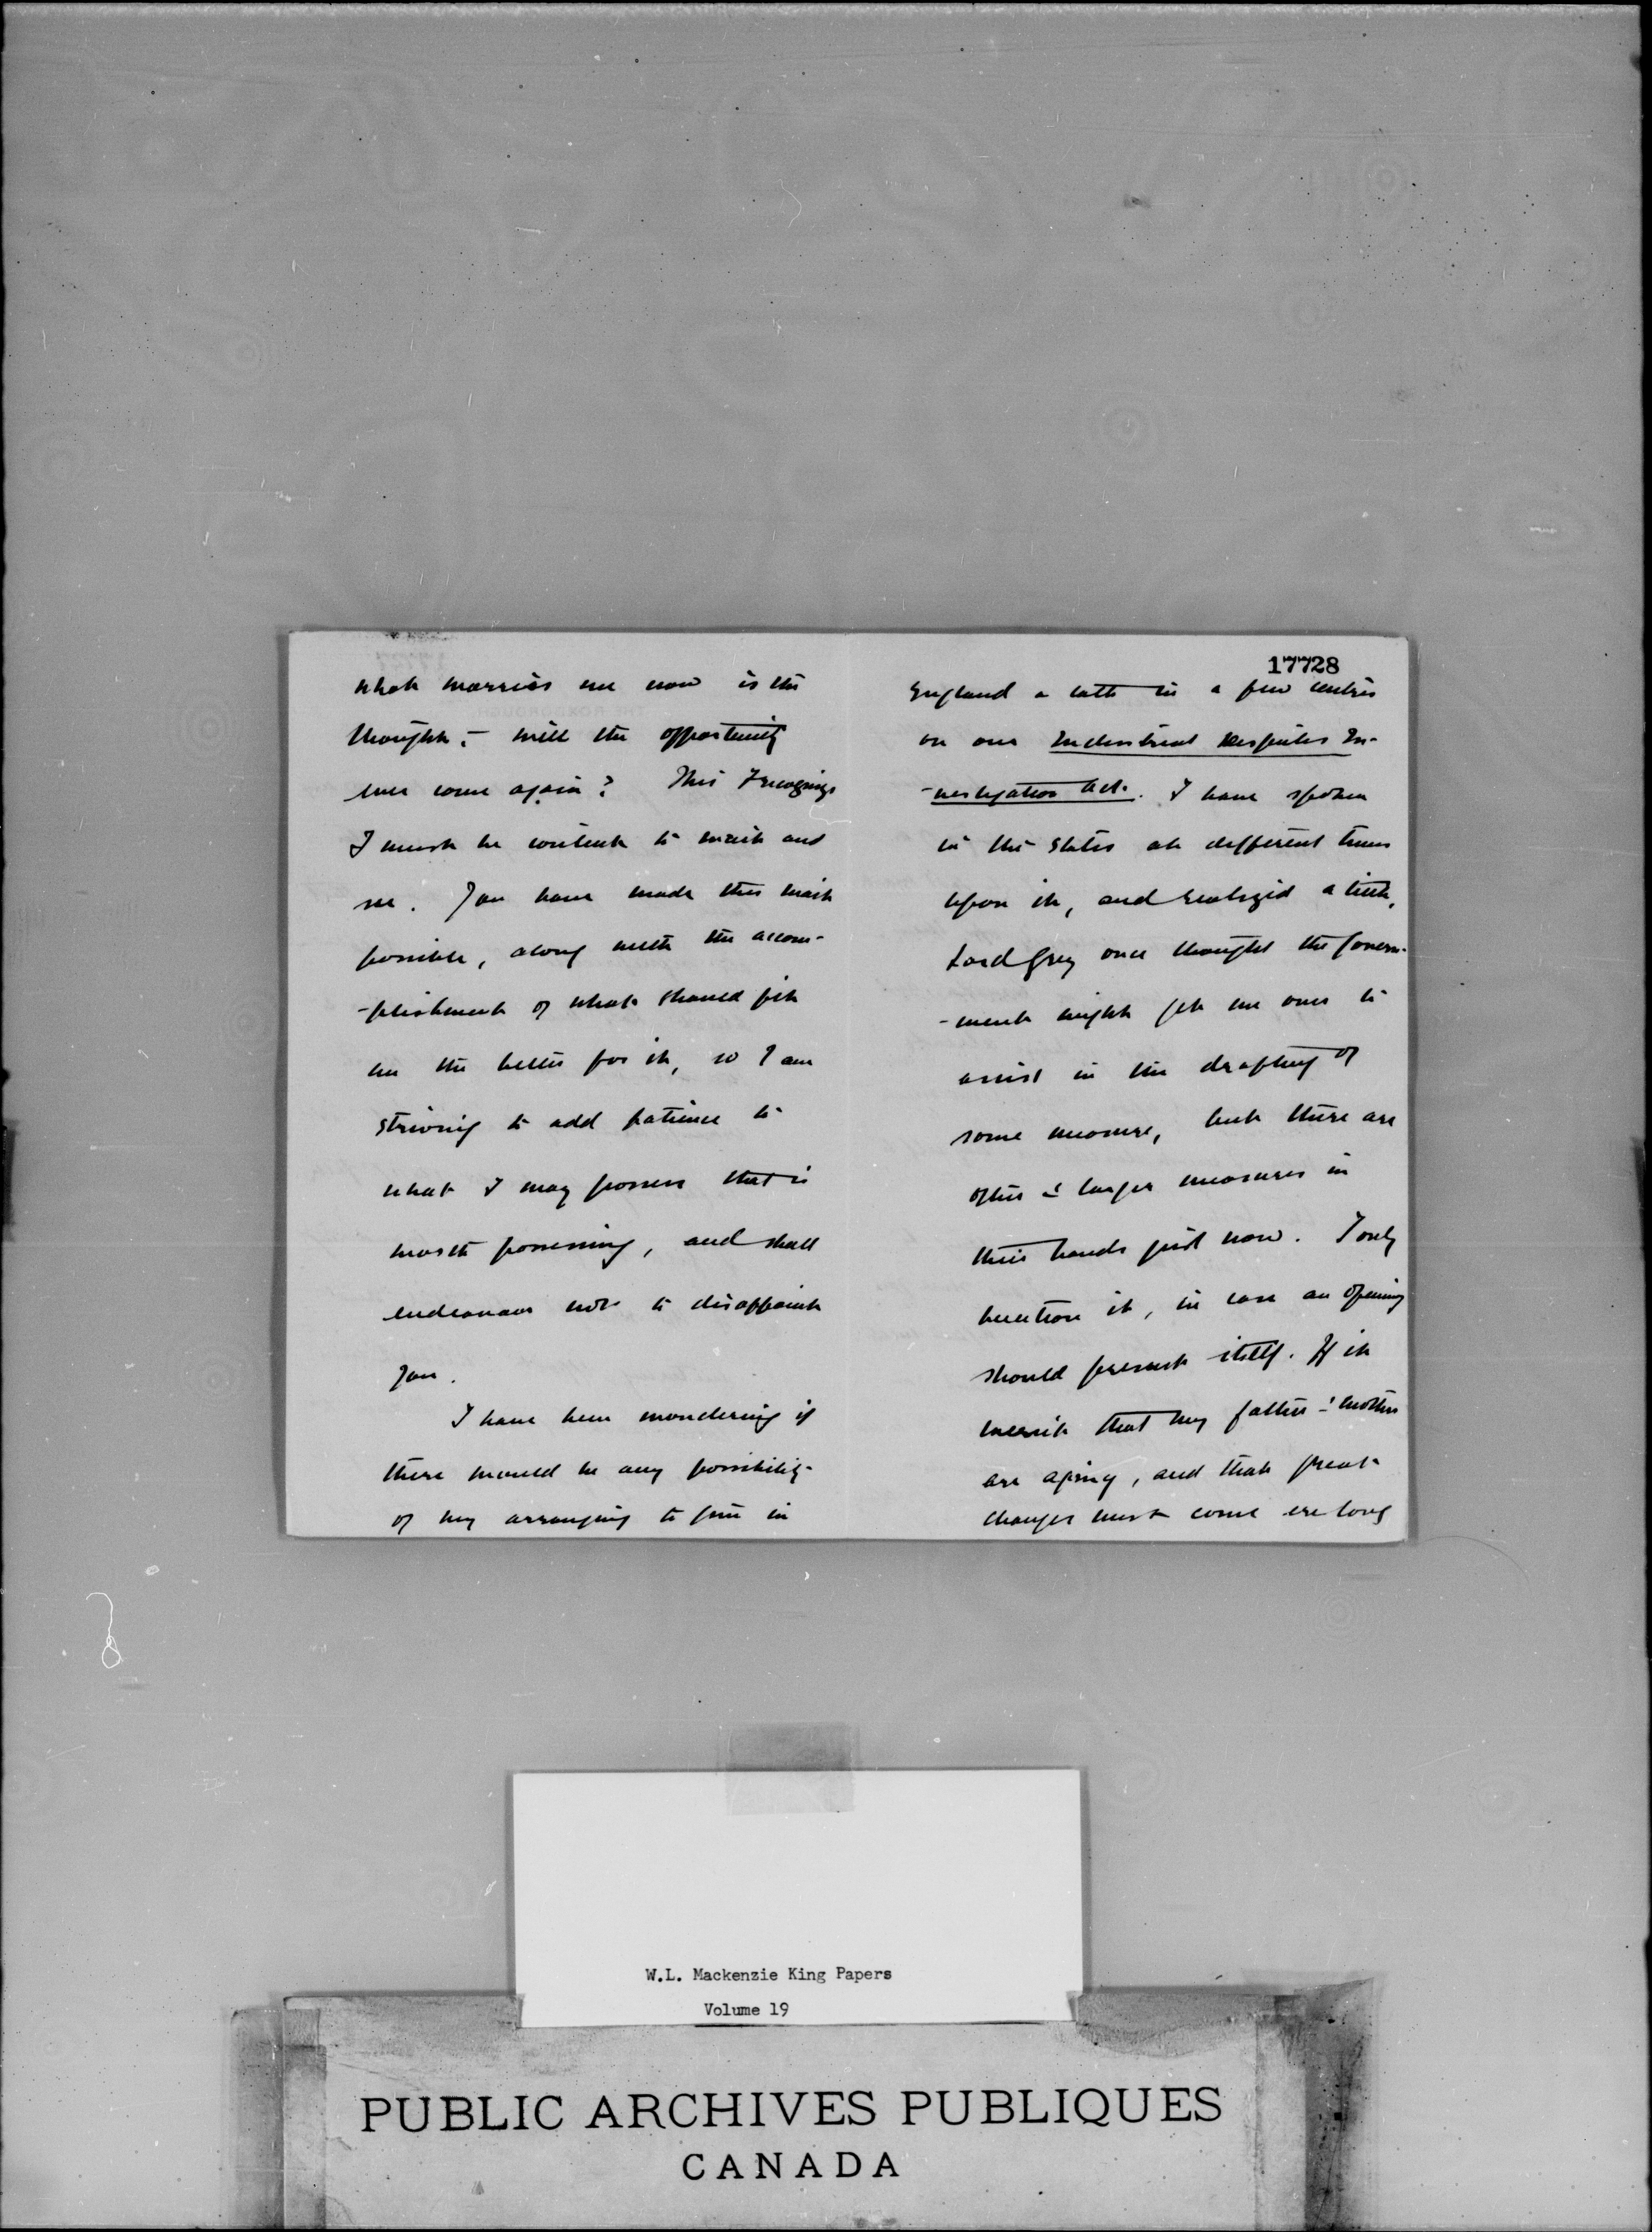 what worries me now is the
thought, – will the opportunity
ever come again? This I recognize
I must be content to wait and
see. You have made this wait
possible, along with the accom-
-plishment of what should fit
me the better for it, so I am
striving to add patience to
what I may possess that is
worth possessing, and shall
endeavour not to disappoint
you.
I have been wondering if
there would be any possibility
of my arranging to give in
17728
England a talk in a few centres
on our Industrial Disputes In-
-vestigation Act. I have spoken
in the States at different times
upon it, and realized a little,
Lord Grey once thought the Govern-
-ment might get me over to
assist in the drafting of
some measure, but there are
other & larger measures in
their hands just now. I only
mention it, in case an opening
should present itself. If it
that my father & mother
are aging, and that great
changes must come ere long
W.L. Mackenzie King Papers
Volume 19
PUBLIC ARCHIVES PUBLIQUES
CANADA